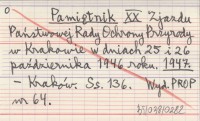 o Pamiętnik XX Zjazdu
Państwowej Rady Ochrony Przyrody
w Krakowie w dniach 25 i 26
października 1946 roku. 1947.
– Kraków. Ss. 136. Wyd. PROP
nr 64.